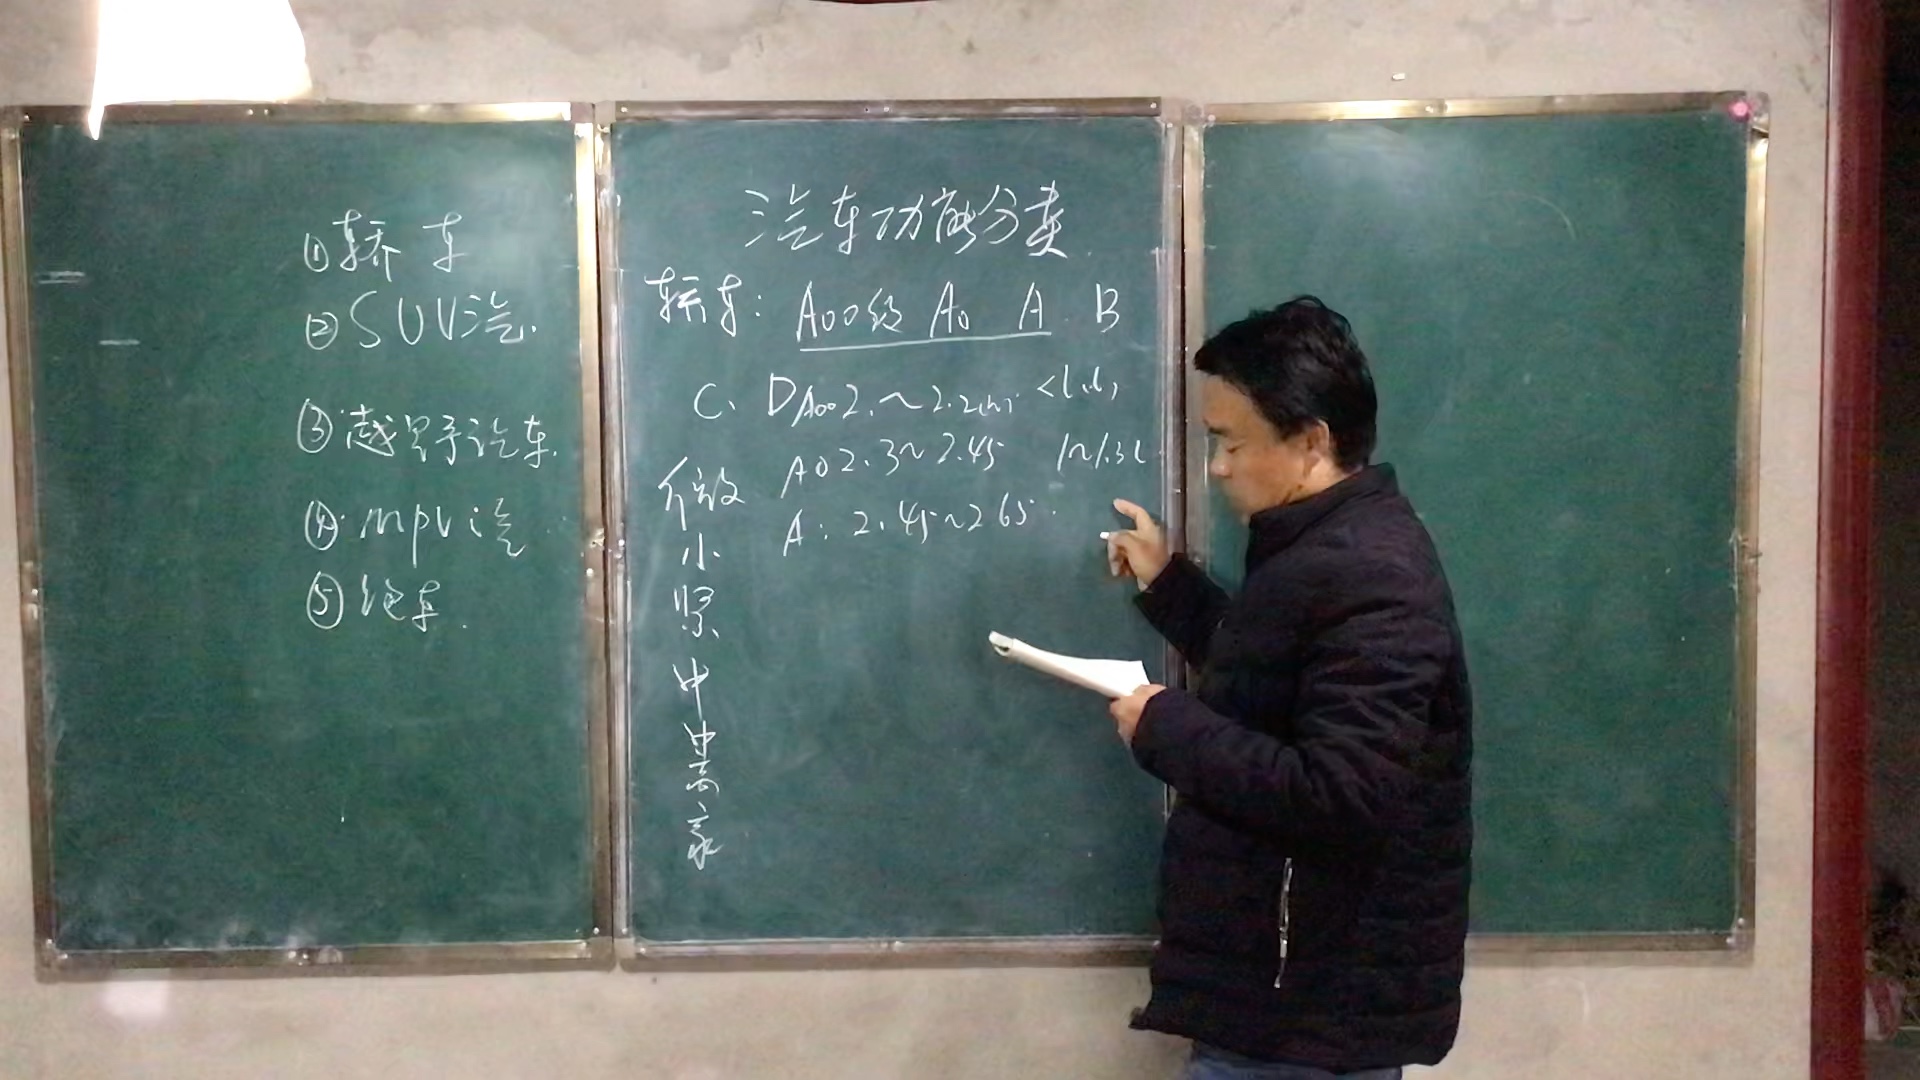 ①轿车
②SUV汽.
③越野汽车.
④.mpv汽
⑤跑车.
汽车功能分类.
轿车: A00级 A0 A. B
C. D A00 2.~2.2m <1.1,
A0 2.3~2.45 1~1.3L
A: 2.45~265.
微
小
紧
中
中高
豪